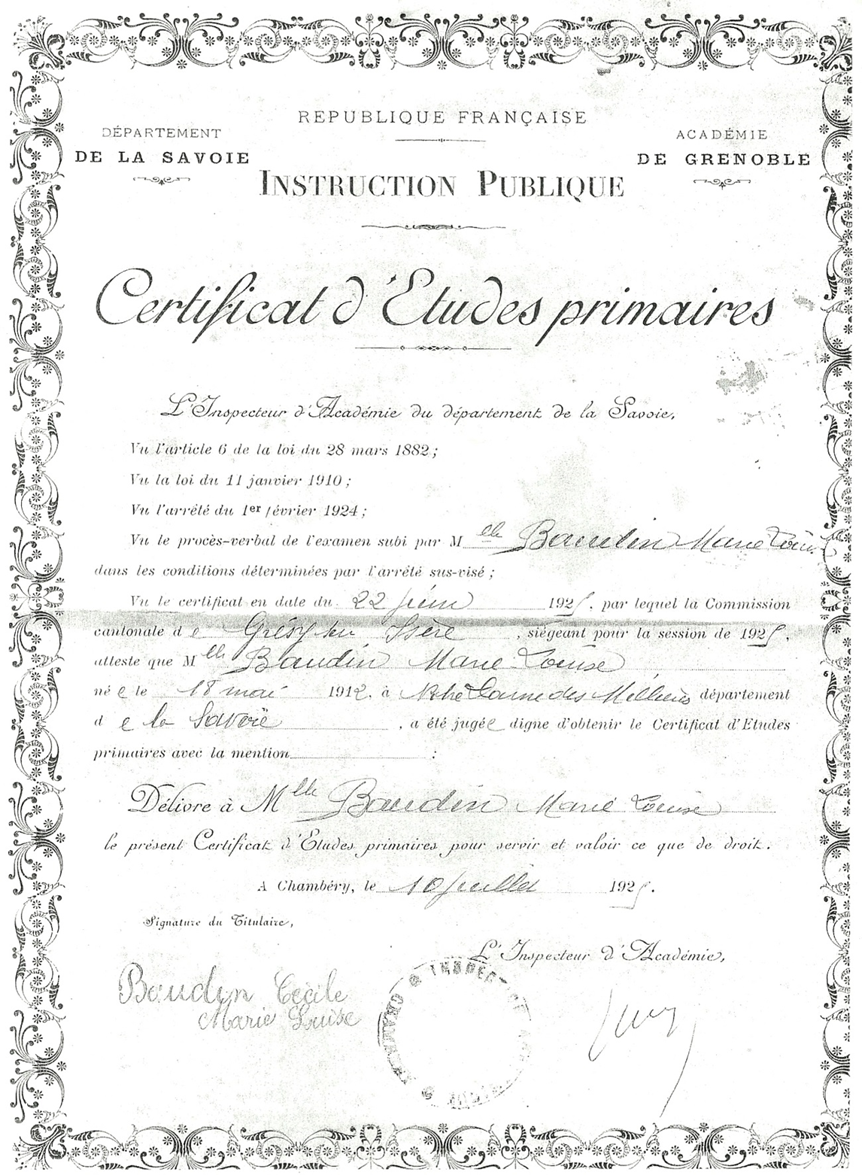 REPUBLIQUE FRANÇAISE
DÉPARTEMENT
DE LA SAVOIE
ACADÉMIE
DE GRENOBLE
INSTRUCTION PUBLIQUE
Certificat d'Etudes primaires
L'Inspecteur d'Académie du département de la Savoie,
Vu l'article 6 de la loi du 28 mars 1882 ;
Vu la loi du 11 janvier 1910 ;
Vu l'arrêté du 1er février 1924 ;
Vu le procès-verbal de l'examen subi par Melle Baudin Marie Louise
dans les conditions déterminées par l'arrêté sus-visé ;
Vu le certificat en date du 22 juin 1925, par lequel la Commission
cantonale de Grésy sur Isère, siégeant pour la session de 1925,
atteste que Melle Baudin Marie Louise
née le 18 mai 1912, à Notre Dame des Millières département
de la Savoie, a été jugée digne d'obtenir le Certificat d'Etudes
primaires avec la mention :
Délivre à Melle Baudin Marie Louise
le présent Certificat d'Etudes primaires pour servir et valoir ce que de droit.
A Chambéry, le 10 juillet 1925.
Signature du Titulaire,
L'Inspecteur d'Académie,
Baudin Cécile
Marie Louise
INSPECT
CHAMBERY